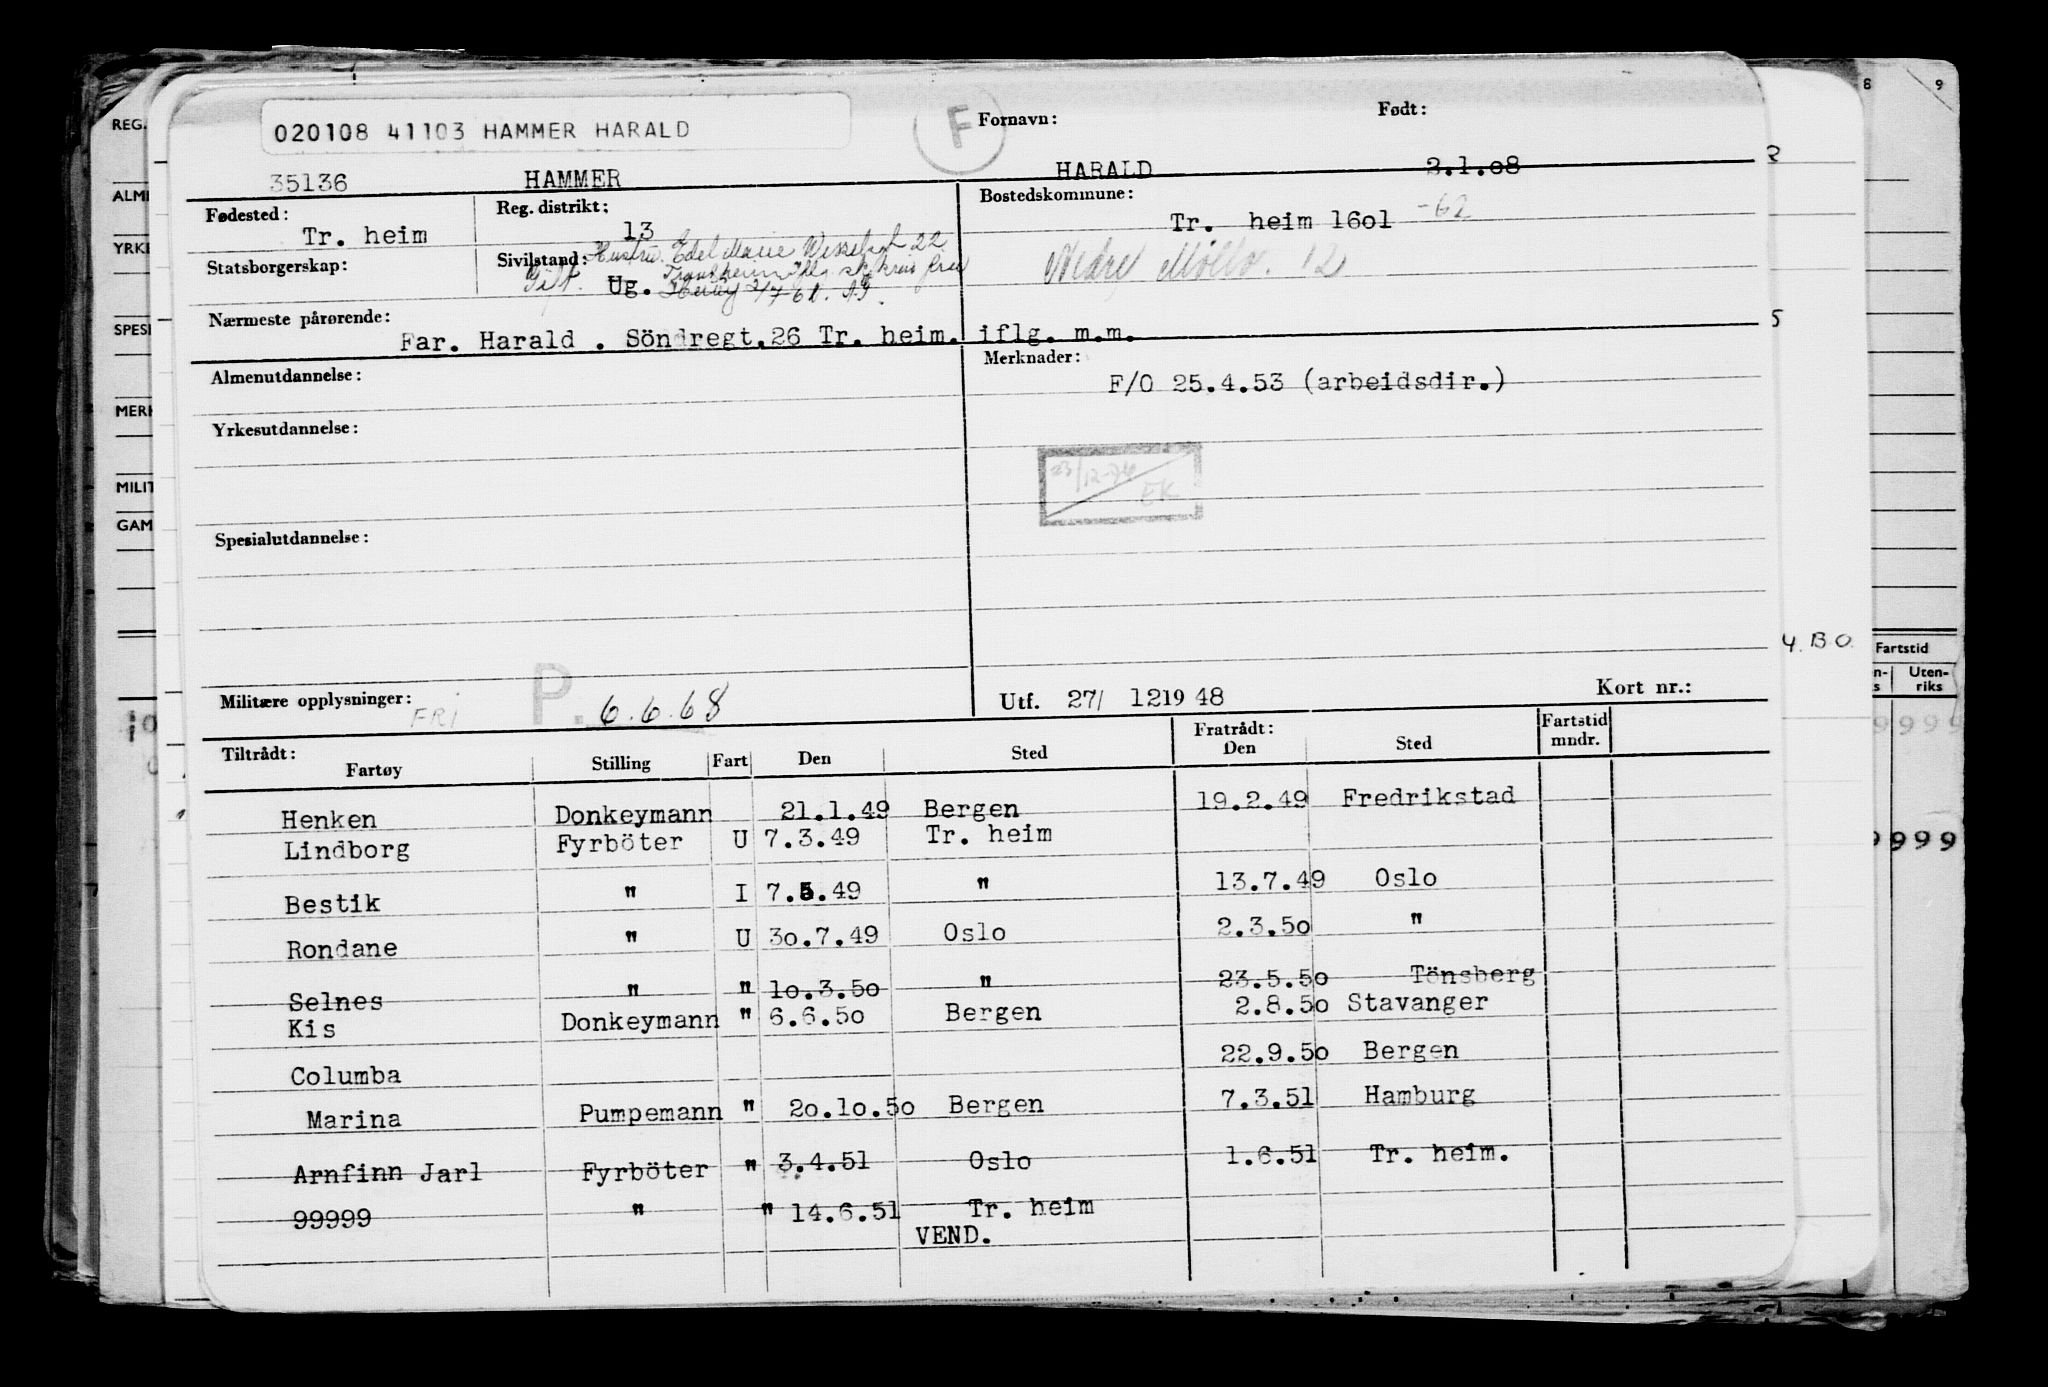 020108 41103 HAMMER HARALD
F
Fornavn: Født:
35136 HAMMER HARALD 2.1.08
Fødested: Reg. distrikt: Bostedskommune:
Tr. heim 13 Tr. heim 16o1 -62
Statsborgerskap: Sivilstand: Hustru Edel Marie 22
Gift. Ug. Nedre 12
Nærmeste pårørende:
Far. Harald . Söndregt.26 Tr. heim. iflg. m.m.
Almenutdannelse: Merknader:
F/O 25.4.53 (arbeidsdir.)
Yrkesutdannelse:
23/12-74 EK
Spesialutdannelse:
Militære opplysninger: FRI P. 6.6.68 Utf. 27/ 1219 48 Kort nr.:
Tiltrådt: Fratrådt: Fartstid
Fartøy Stilling Fart Den Sted Den Sted mndr.
Henken Donkeymann 21.1.49 Bergen 19.2.49 Fredrikstad
Lindborg Fyrböter U 7.3.49 Tr. heim
Bestik " I 7.5.49 " 13.7.49 Oslo
Rondane " U 3o.7.49 Oslo 2.3.5o "
Selnes " " 1o.3.5o " 23.5.5o Tönsberg
Kis Donkeymann " 6.6.5o Bergen 2.8.5o Stavanger
Columba 22.9.5o Bergen
Marina Pumpemann " 2o.1o.5o Bergen 7.3.51 Hamburg
Arnfinn Jarl Fyrböter " 3.4.51 Oslo 1.6.51 Tr. heim.
99999 " " 14.6.51 Tr. heim
VEND.
REG.
ALME
YRKE
SPESI
MERK
MILIT
GAM
8 9
4. B.O.
Fartstid
Uten-
riks
9999
9999